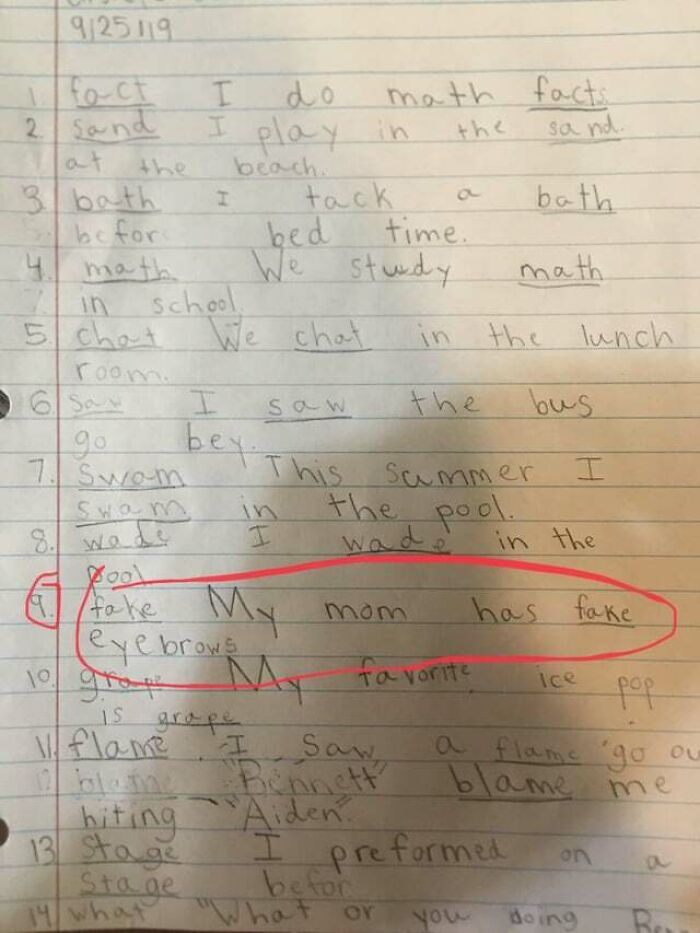 9/25/19
1. fact I do math facts
2 sand I play in the sand.
at the beach.
3 bath I tack a bath
befor bed time.
4. math We study math
in school.
5. chat We chat in the lunch
room.
6 saw I saw the bus
go bey.
7. swam This sammer I
swam in the pool.
8. wade I wade in the
pool
9. fake My mom has fake
eyebrows
10. grape My favorite ice pop
is grape
11. flame. I saw a flame go ou
12 blame "Bennett" blame me
hiting "Aiden".
13 Stage I preformed on a
Stage befor
14 what "What or you doing